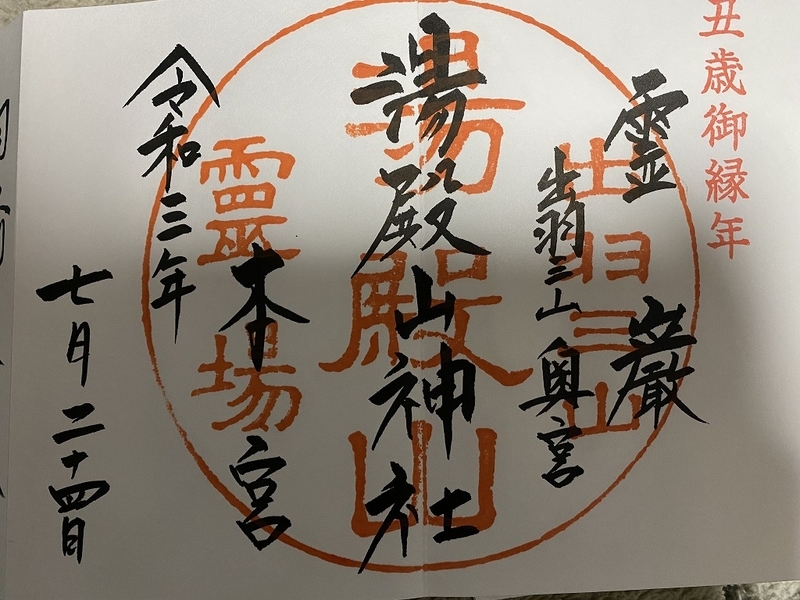 丑歳御縁年
霊巌
出羽三山奥宮
湯殿山神社
本宮
令和三年
七月二十四日
出羽三山
湯殿山
靈場